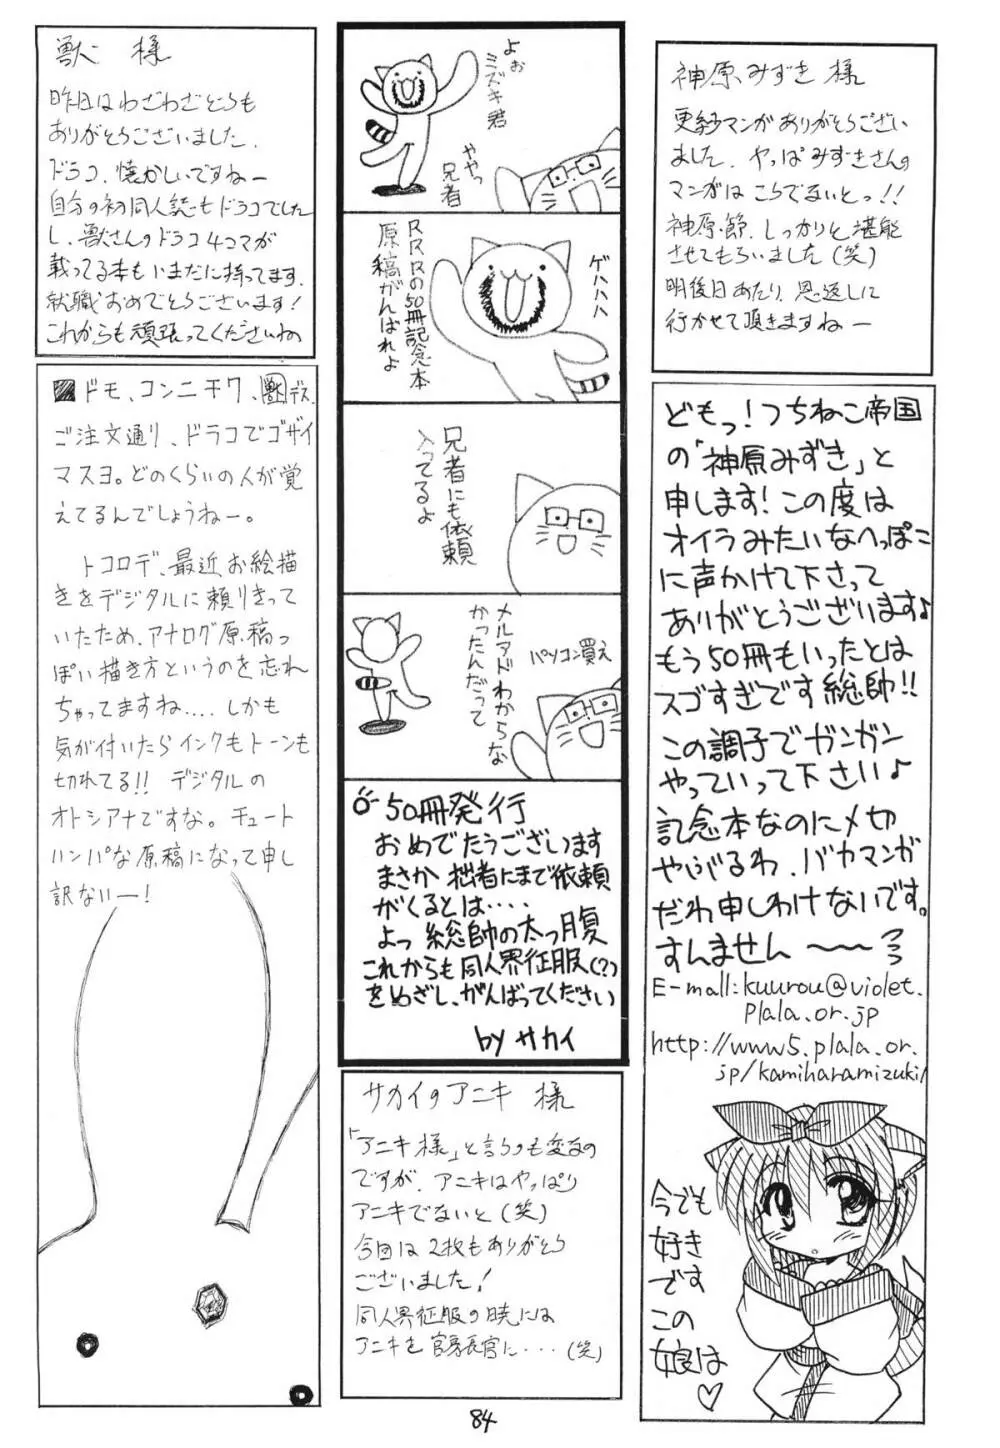 獣 様
昨日はわざわざどうも
ありがとうございました.
ドラコ、懐かしいですねー
自分の初同人誌もドラコでした
し、獣さんのドラコ4コマが
載ってる本もいまだに持ってます.
就職おめでとうございます!
これからも頑張ってくださいね
ドモ、コンニチワ、獣デス.
ご注文通り、ドラコでゴザイ
マスヨ。どのくらいの人が覚
えてるんでしょうねー。
トコロデ、最近お絵描
きをデジタルに頼りきって
いたため、アナログ原稿っ
ぽい描き方というのを忘れ
ちゃってますね.... しかも
気が付いたらインクもトーンも
切れてる!! デジタルの
オトシアナですな。チュート
ハンパな原稿になって申し
訳ないー!
よぉ
ミズキ君
ややっ
兄者
RRRの50冊記念本
原稿がんばれよ
ゲハハハ
兄者にも依頼
入ってるよ
メルアドわからな
かったんだって
パソコン買え
50冊発行
おめでたうございます
まさか拙者にまで依頼
がくるとは・・・・
よっ 総帥の太っ腹
これからも同人界征服(?)
をめざし、がんばってください
by サカイ
サカイのアニキ 様
「アニキ様」と言うのも変なの
ですが、アニキはやっぱり
アニキでないと(笑)
今回は2枚もありがとう
ございました!
同人界征服の暁には
アニキを官房長官に・・・(笑)
神原みずき 様
更紗マンガありがとうござい
ました、やっぱみずきさんの
マンガはこうでないとっ!!
神原節、しっかりと堪能
させてもらいました(笑)
明後日あたり、恩返しに
行かせて頂きますねー
どもっ!つちねこ帝国
の「神原みずき」と
申します!この度は
オイラみたいなへっぽこ
に声かけて下さって
ありがとうございます♪
もう50冊もいったとは
スゴすぎです総帥!!
この調子でガンガン
やっていって下さい♪
記念本なのに〆切
やぶるわ、バカマンガ
だわ申しわけないです。
すんません〜〜
E-mall:kuurou@violet.
plala.or.jp
http://www5.plala.or.
jp/kamiharamizuki/
今でも
好き
です
この
娘は
♡
84